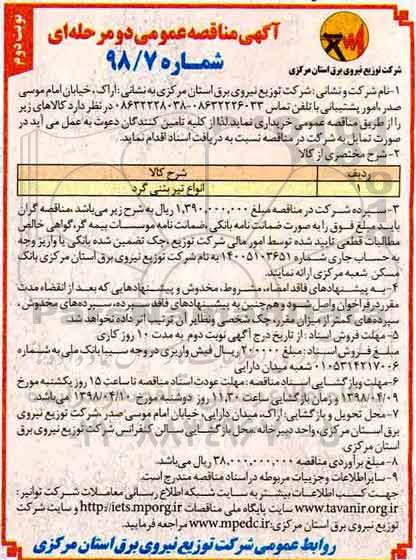 نوبت دوم
آگهی مناقصه عمومی دو مرحله‌ای
شماره ۹۸/۷
شرکت توزیع نیروی برق استان مرکزی
۱-نام شرکت و نشانی : شرکت توزیع نیروی برق استان مرکزی به نشانی : اراک، خیابان امام موسی
صدر، امور پشتیبانی با تلفن تماس ۰۸۶۳۲۲۲۶۰۳۳-۰۸۶۳۲۲۲۸۰۳۸ در نظر دارد کالاهای زیر
را از طریق مناقصه عمومی خریداری نماید لذا از کلیه تامین کنندگان دعوت به عمل می آید در
صورت تمایل به شرکت در مناقصه نسبت به دریافت اسناد اقدام نماید.
۲-شرح مختصری از کالا
ردیف شرح کالا
۱ انواع تیر بتنی گرد
۳-سپرده شرکت در مناقصه مبلغ ۱,۳۹۰,۰۰۰,۰۰۰ ریال به شرح زیر می‌باشد، مناقصه گران
باید مبلغ فوق را به صورت ضمانت نامه بانکی ،ضمانت نامه موسسات بیمه گر،گواهی خالص
مطالبات قطعی تایید شده توسط امور مالی شرکت توزیع ،چک تضمین شده بانکی یا واریز وجه
به حساب جاری شماره ۱۴۰۰۵۱۰۳۶۵۱ به نام شرکت توزیع نیروی برق استان مرکزی بانک
مسکن شعبه مرکزی ارائه نمایند.
۴-به پیشنهادهای فاقد امضاء، مشروط، مخدوش و پیشنهادهایی که بعد از انقضاء مدت
مقرر در فراخوان واصل شود و هم‌چنین به پیشنهادهای فاقد سپرده، سپرده‌های مخدوش،
سپرده‌های کمتر از میزان مقرر، چک شخصی و نظایر آن ترتیب اثر داده نخواهد شد.
۵-مهلت فروش اسناد : از تاریخ درج آگهی نوبت دوم به مدت ۱۰ روز کاری
مبلغ فروش اسناد : مبلغ ۲۰۰۰۰۰ ریال فیش واریزی در وجه سیبا بانک ملی به شماره
۰۱۰۵۳۱۴۲۱۷۰۰۶ شعبه میدان دارایی
۶-مهلت و بازگشایی اسناد مناقصه: مهلت عودت اسناد مناقصه تا ساعت ۱۵ روز یکشنبه مورخ
۱۳۹۸/۰۴/۰۹ و زمان بازگشایی ساعت ۱۱,۳۰ روز دوشنبه مورخ ۱۳۹۸/۰۴/۱۰ می‌باشد.
۷-محل تحویل و بازگشایی: اراک، میدان دارایی، خیابان امام موسی صدر ،شرکت توزیع نیروی
برق استان مرکزی، واحد دبیرخانه.محل بازگشایی سالن کنفرانس شرکت توزیع نیروی برق
استان مرکزی.
۸-مبلغ برآوردی مناقصه ۳۸,۰۰۰,۰۰۰,۰۰۰ ریال می‌باشد.
۹-سایر اطلاعات و جزییات مربوطه در اسناد مناقصه مندرج است.
جهت کسب اطلاعات بیشتر به سایت شبکه اطلاع رسانی معاملات شرکت توانیر:
www.tavanir.org.ir سایت پایگاه ملی مناقصات http://iets.mporg.ir و سایت شرکت
توزیع نیروی برق استان مرکزی: www.mpedc.ir مراجعه فرمایید.
روابط عمومی شرکت توزیع نیروی برق استان مرکزی